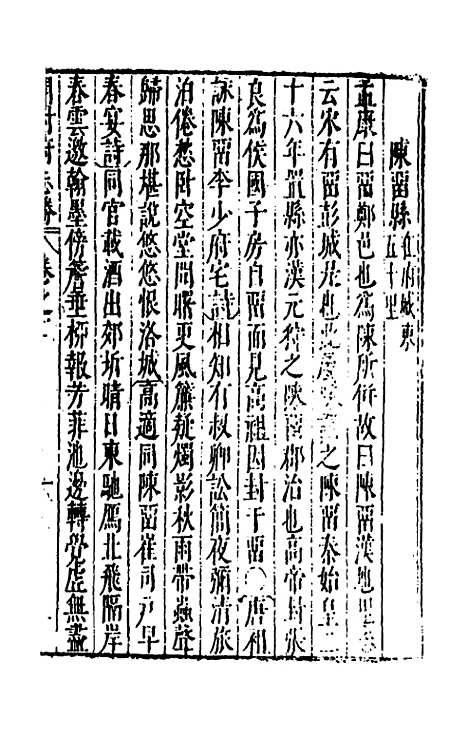 陳留縣在府城東五十里
孟康曰留鄭邑也爲陳所併故曰陳留漢地里
云宋有留彭城是也此之陳留秦始皇二
十六年置縣亦漢元狩之陳留郡治也高帝封張
良爲侯國子房自留而見高祖因封于留唐祖
詠陳留李少府宅詩相知有叔卿訟簡夜彌清旅
泊倦愁卧空堂聞曙更風簾摇燭影秋雨帶蟲聲
歸思那堪說悠悠恨洛城高適同陳留崔司戶早
春宴詩同官載酒出郊圻晴日東馳鴈北飛隔岸
春雲邀翰墨傍簷垂柳報芳菲池邊轉覺虛無盡
開封府志勝卷之